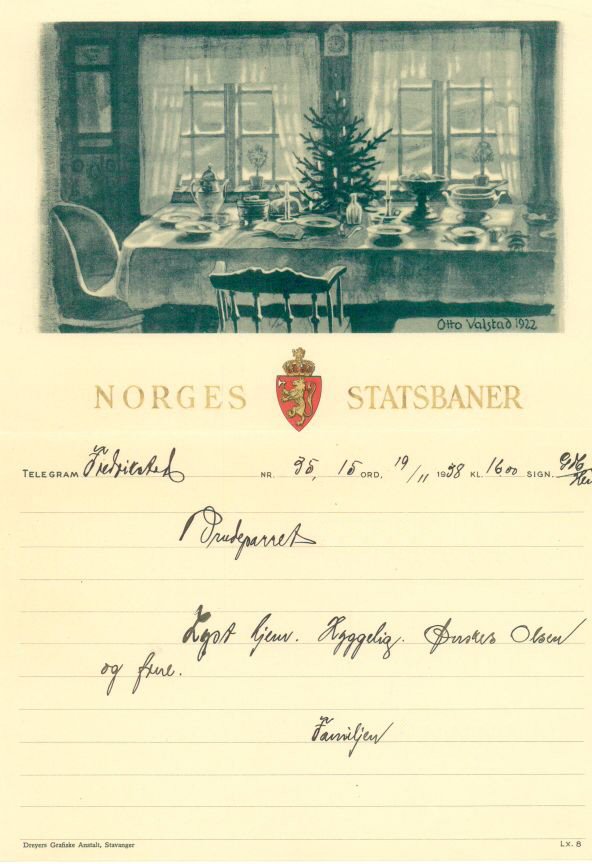 Otto Valstad 1922
NORGES STATSBANER
TELEGRAM Fredrikstad NR. 35, 15 ORD, 19/11 1938 KL. 1600 SIGN.
Brudeparret
Lyst hjem. Hyggelig. Ønskes Olsen
og frue.
Familjen
Dreyers Grafiske Anstalt, Stavanger LX. 8